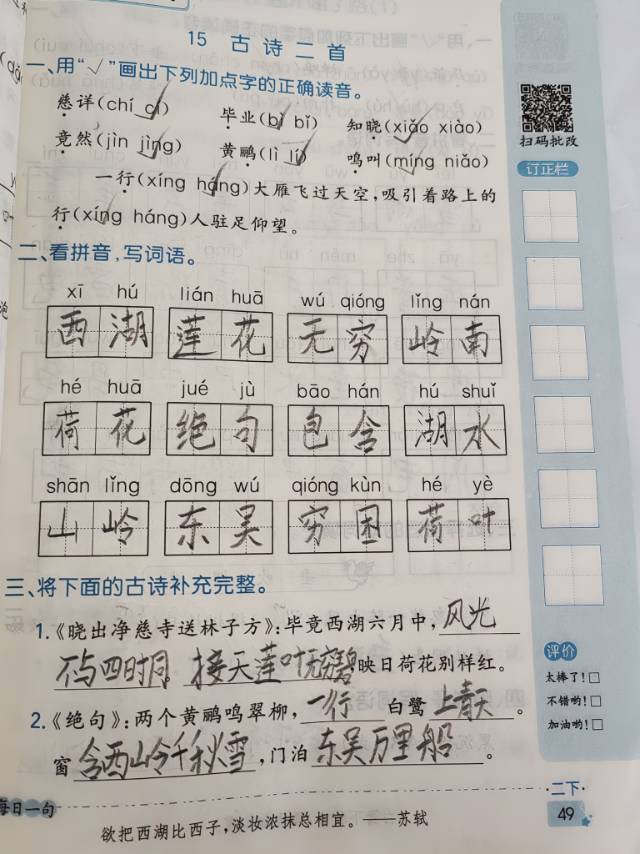 15 古诗二首
一、用“√”画出下列加点字的正确读音。
慈祥(chí cí) 毕业(bì bǐ) 知晓(xiǎo xiào)
竟然(jìn jìng) 黄鹂(lì lí) 鸣叫(míng niǎo)
一行(xíng háng)大雁飞过天空,吸引着路上的
行(xíng háng)人驻足仰望。
扫码批改
订正栏
二、看拼音,写词语。
xī hú lián huā wú qióng lǐng nán
西湖 莲花 无穷 岭南
hé huā jué jù bāo hán hú shuǐ
荷花 绝句 包含 湖水
shān lǐng dōng wú qióng kùn hé yè
山岭 东吴 穷困 荷叶
三、将下面的古诗补充完整。
1.《晓出净慈寺送林子方》:毕竟西湖六月中,风光
不与四时同 接天莲叶无穷碧映日荷花别样红。
2.《绝句》:两个黄鹂鸣翠柳,一行白鹭上青天。
窗含西岭千秋雪,门泊东吴万里船。
评价
太棒了!□
不错哟!□
加油哟!□
二下
49
每日一句
欲把西湖比西子,淡妆浓抹总相宜。——苏轼